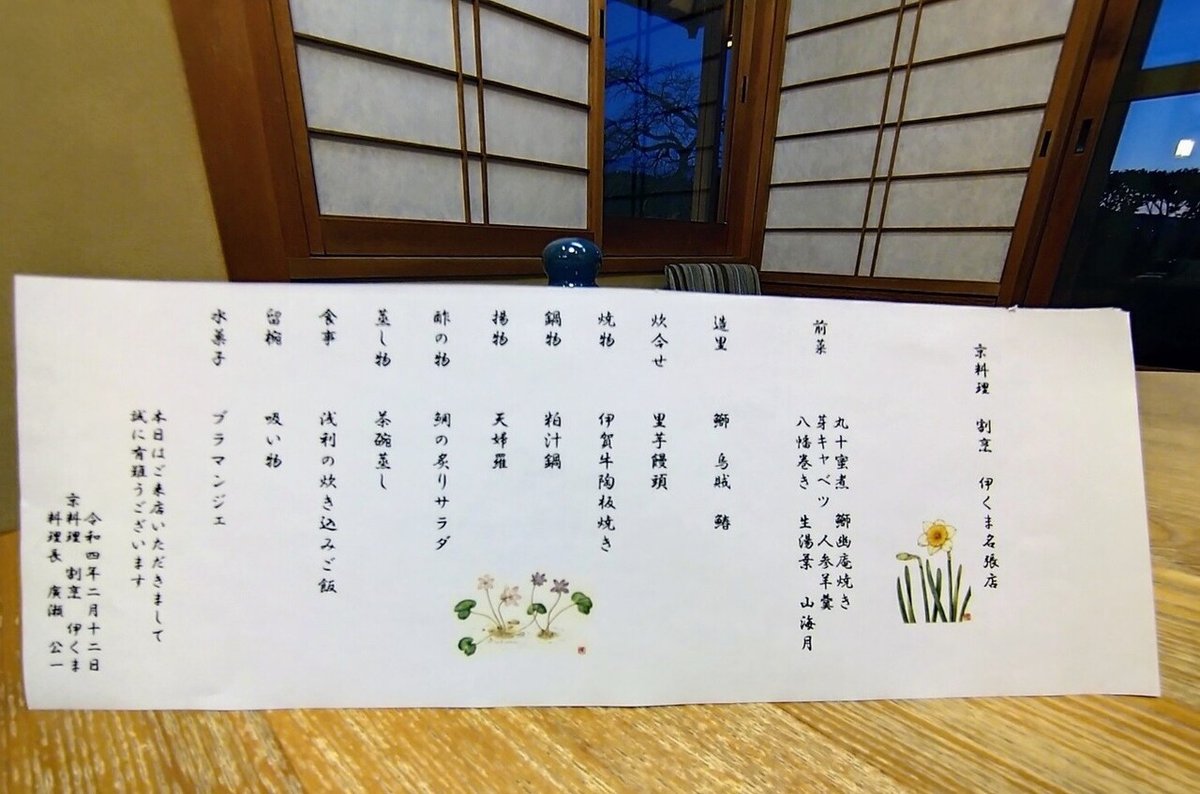 京料理 割烹 伊くま名張店
前菜
丸十蜜煮 鰤幽庵焼き
芽キャベツ 人参羊羹
八幡巻き 生湯葉 山海月
造里 鰤 烏賊 鰆
炊合せ 里芋饅頭
焼物 伊賀牛陶板焼き
鍋物 粕汁鍋
揚物 天婦羅
酢の物 鯛の炙りサラダ
蒸し物 茶碗蒸し
食事 浅利の炊き込みご飯
留椀 吸い物
水菓子 ブラマンジェ
本日はご来店いただきまして
誠に有難うございます
令和四年二月十二日
京料理 割烹 伊くま
料理長 廣瀬 公一